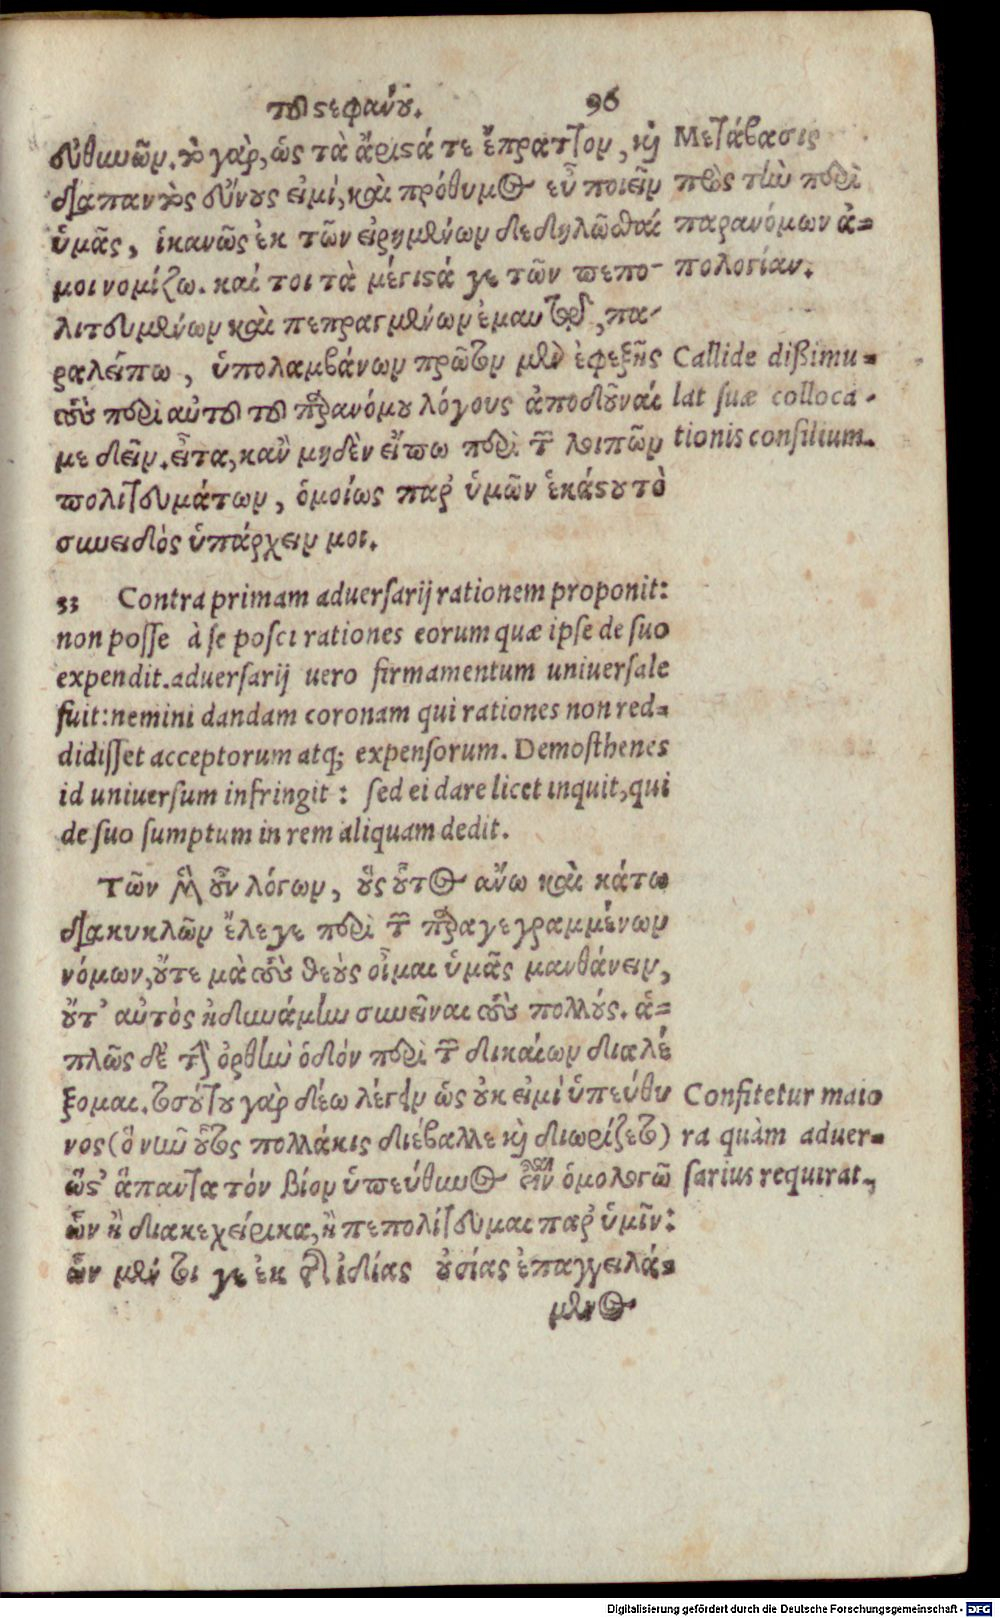 τοῦ στεφάνου. 96
ευθυνῶν. τὸ γὰρ, ὡς τὰ ἄριστά τε ἔπραττον, καὶ
διαπαντὸς εὔνους εἰμί, καὶ πρόθυμος εὖ ποιεῖν
ὑμᾶς, ἱκανῶς ἐκ τῶν εἰρημένων δεδηλῶσθαί
μοι νομίζω. καί τοι τὰ μέγιστά γε τῶν πεπο-
λιτευμένων καὶ πεπραγμένων ἐμαυτῷ, πα-
ραλείπω, ὑπολαμβάνων πρῶτον μὲν ἐφεξῆς
τοὺς περὶ αὐτοῦ τοῦ παρανόμου λόγους ἀποδοῦναί
με δεῖν. εἶτα, κἂν μηδὲν εἴπω περὶ τῶν λοιπῶν
πολιτευμάτων, ὁμοίως παρ' ὑμῶν ἑκάστου τὸ
συνειδὸς ὑπάρχειν μοι.
Μετάβασις
πρὸς τὴν περὶ
παρανόμων ἀ=
πολογίαν.
Callide dißimu=
lat suæ colloca-
tionis consilium.
53 Contra primam aduersarij rationem proponit:
non posse à se posci rationes eorum quæ ipse de suo
expendit. aduersarij uero firmamentum uniuersale
fuit: nemini dandam coronam qui rationes non red=
didisset acceptorum atq; expensorum. Demosthenes
id uniuersum infringit: sed ei dare licet inquit, qui
de suo sumptum in rem aliquam dedit.
Τῶν μὲν οὖν λόγων, οὓς οὗτος ἄνω καὶ κάτω
διακυκλῶν ἔλεγε περὶ τῶν παραγεγραμμένων
νόμων, οὔτε μὰ τοὺς θεοὺς οἶμαι ὑμᾶς μανθάνειν,
οὔτ' αὐτὸς ἠδυνάμην συνεῖναι τοὺς πολλούς. ἁ=
πλῶς δὲ τὴν ὀρθὴν ὁδὸν περὶ τῶν δικαίων διαλέ
ξομαι. τοσούτου γὰρ δέω λέγειν ὡς οὐκ εἰμὶ ὑπεύθυ
νος (ὃ νῦν οὗτος πολλάκις διέβαλλε καὶ διωρίζετο)
ὥσθ' ἅπαντα τὸν βίον ὑπεύθυνος εἶναι ὁμολογῶ
ὧν ἢ διακεχείρικα, ἢ πεπολίτευμαι παρ' ὑμῖν:
ὧν μέν τοι γε ἐκ τῆς ἰδίας οὐσίας ἐπαγγειλά=
μενος
Confitetur maio
ra quàm aduer=
sarius requirat.
Digitalisierung gefördert durch die Deutsche Forschungsgemeinschaft - DFG